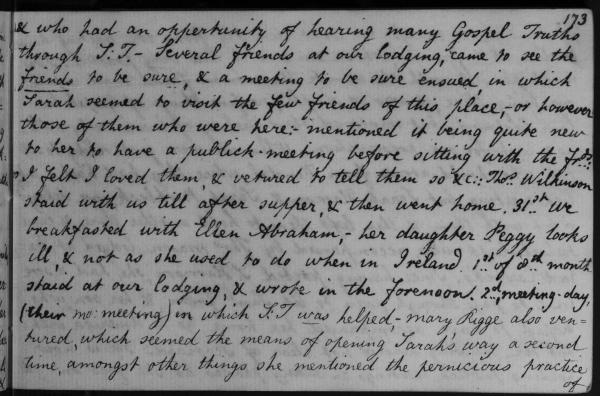 173
& who had an opportunity of hearing many Gospel Truths
through S.T.- Several friends at our lodging, came to see the
friends to be sure, & a meeting to be sure ensued, in which
Sarah seemed to visit the few friends of this place,- or however
those of them who were here:- mentioned it being quite new
to her to have a publick-meeting before sitting with the frds:
I felt I loved them, & vetured to tell them so &c:; Thos. Wilkinson
staid with us till after supper, & then went home. 31st We
breakfasted with Ellen Abraham,- her daughter Peggy looks
ill, & not as she used to do when in Ireland. 1st of 8th month
staid at our lodging, & wrote in the forenoon. 2d, meeting-day,
(their mo: meeting) in which S.T was helped- mary Rigge also ven-
tured, which seemed the means of opening Sarah's way a second
time, amongst other things she mentioned the pernicious practice
of